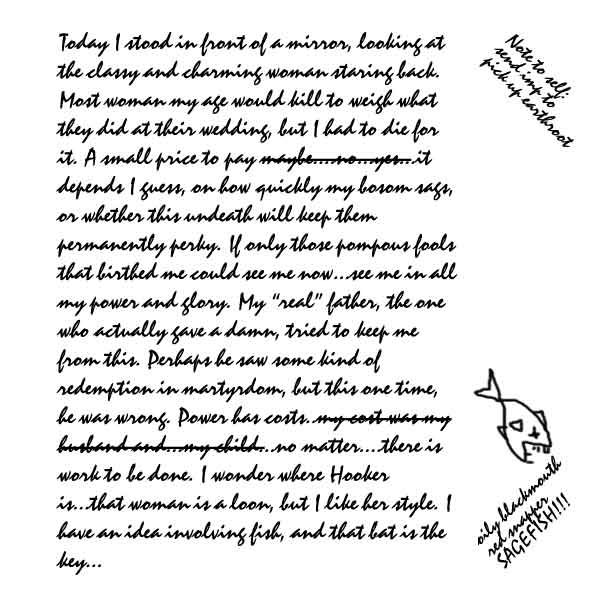 Today I stood in front of a mirror, looking at
the classy and charming woman staring back.
Most woman my age would kill to weigh what
they did at their wedding, but I had to die for
it. A small price to pay maybe....no...yes...it
depends I guess, on how quickly my bosom sags,
or whether this undeath will keep them
permanently perky. If only those pompous fools
that birthed me could see me now...see me in all
my power and glory. My “real” father, the one
who actually gave a damn, tried to keep me
from this. Perhaps he saw some kind of
redemption in martyrdom, but this one time,
he was wrong. Power has costs..my cost was my
husband and....my child...no matter....there is
work to be done. I wonder where Hooker
is...that woman is a loon, but I like her style. I
have an idea involving fish, and that bat is the
key...
Note to self:
send imp to
pick up earthroot
oily blackmouth
red snapper
SAGEFISH!!!